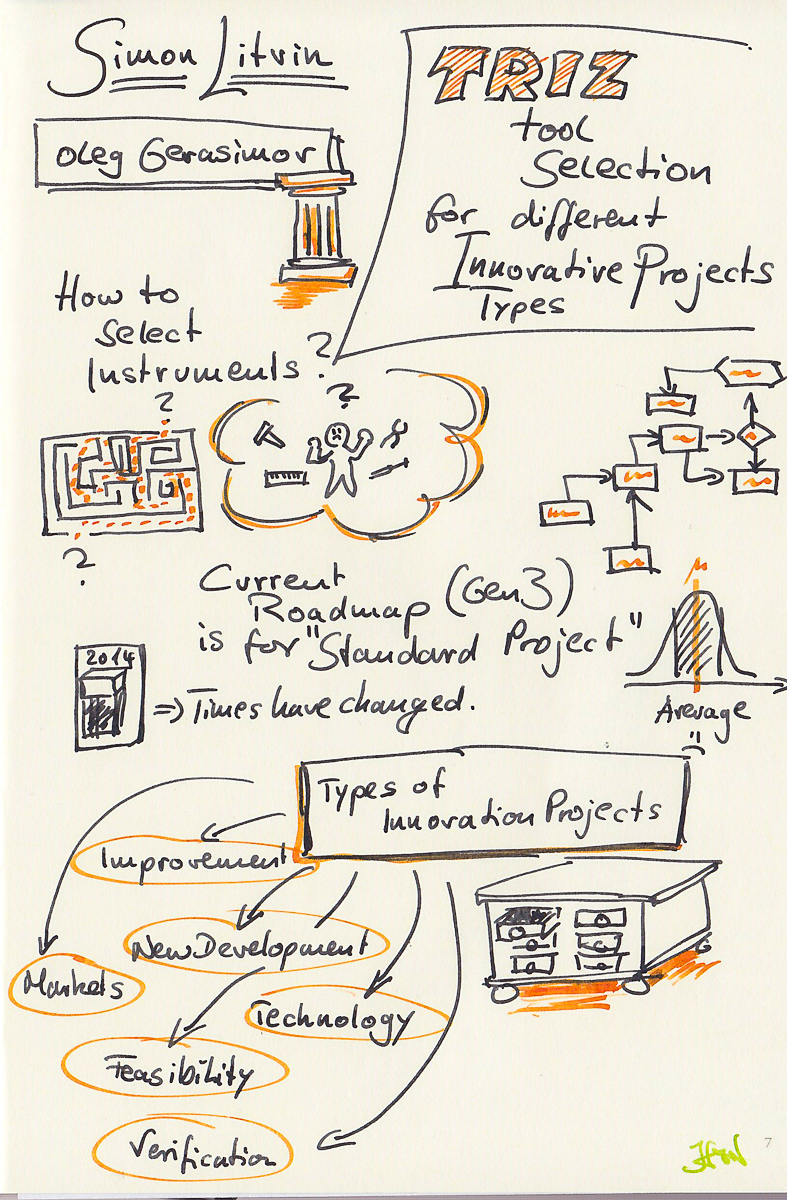 Simon Litvin
Oleg Gerasimov
TRIZ
tool
Selection
for different
Innovative Projects
Types
How to
Select
Instruments ?
?
?
?
Current
Roadmap (Gen3)
is for "Standard Project"
μ
Average
:(
2014
=> Times have changed.
Types of
Innovation Projects
Improvement
New Development
Markets
Technology
Feasibility
Verification
7